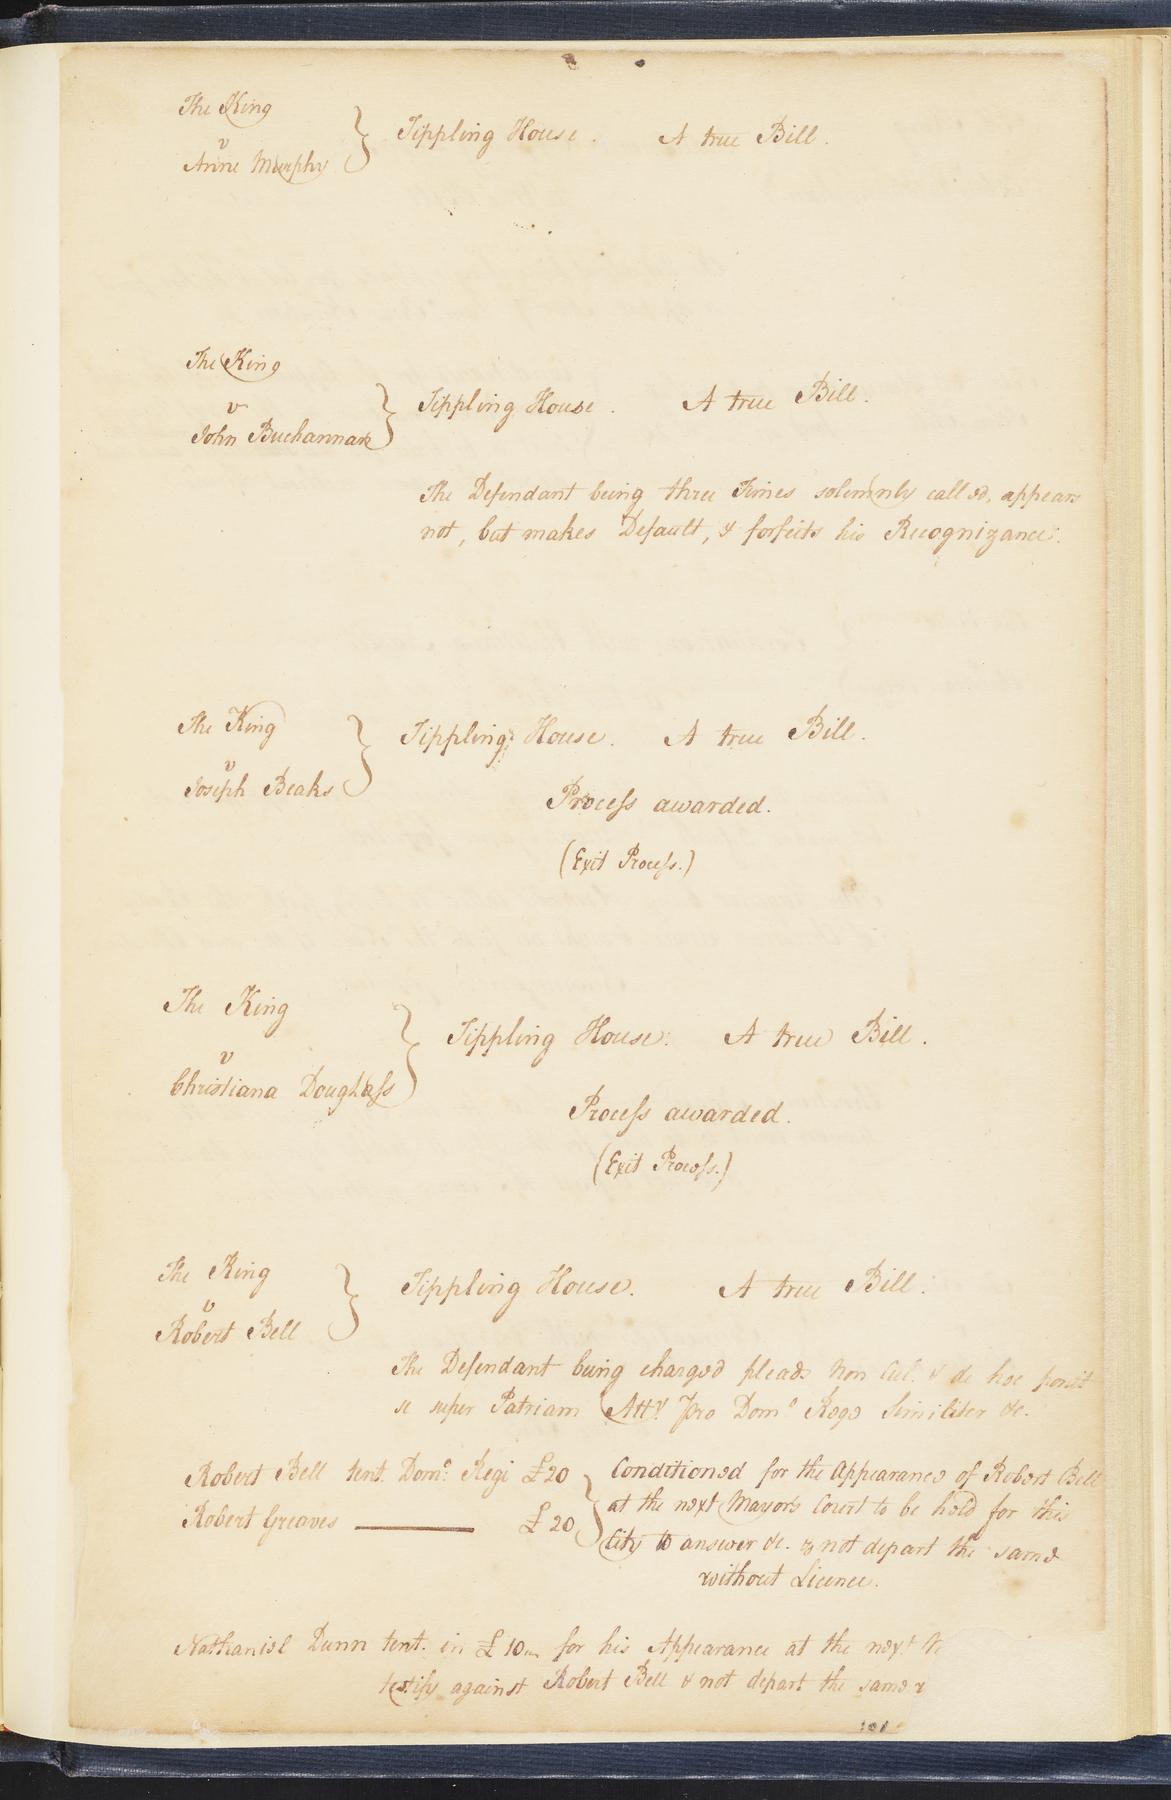 The King
v
Anne Murphy } Tippling House. A true Bill.
The King
v
John Buchannan } Tippling House. A true Bill.
The Defendant being three Times solemnly called, appears
not, but makes Default, & forfeits his Recognizance.
The King
v
Joseph Beaks } Tippling House. A true Bill.
Process awarded.
(Exit Process.)
The King
v
Christiana Douglass } Tippling House. A true Bill.
Process awarded.
(Exit Process.)
The King
v
Robert Bell } Tippling House. A true Bill.
The Defendant being charged pleads Non Cul. & de hoc ponit
se super Patriam Atty. Pro Domo Rege Similiter &c.
Robert Bell tent. Domo. Regi £20 } Conditioned for the Appearance of Robert Bell
Robert Greaves £20 at the next Mayor's Court to be held for this
City to answer &c. & not depart the same
without Licence.
Nathaniel Dunn tent. in £10 for his Appearance at the next
testify against Robert Bell & not depart the same
101